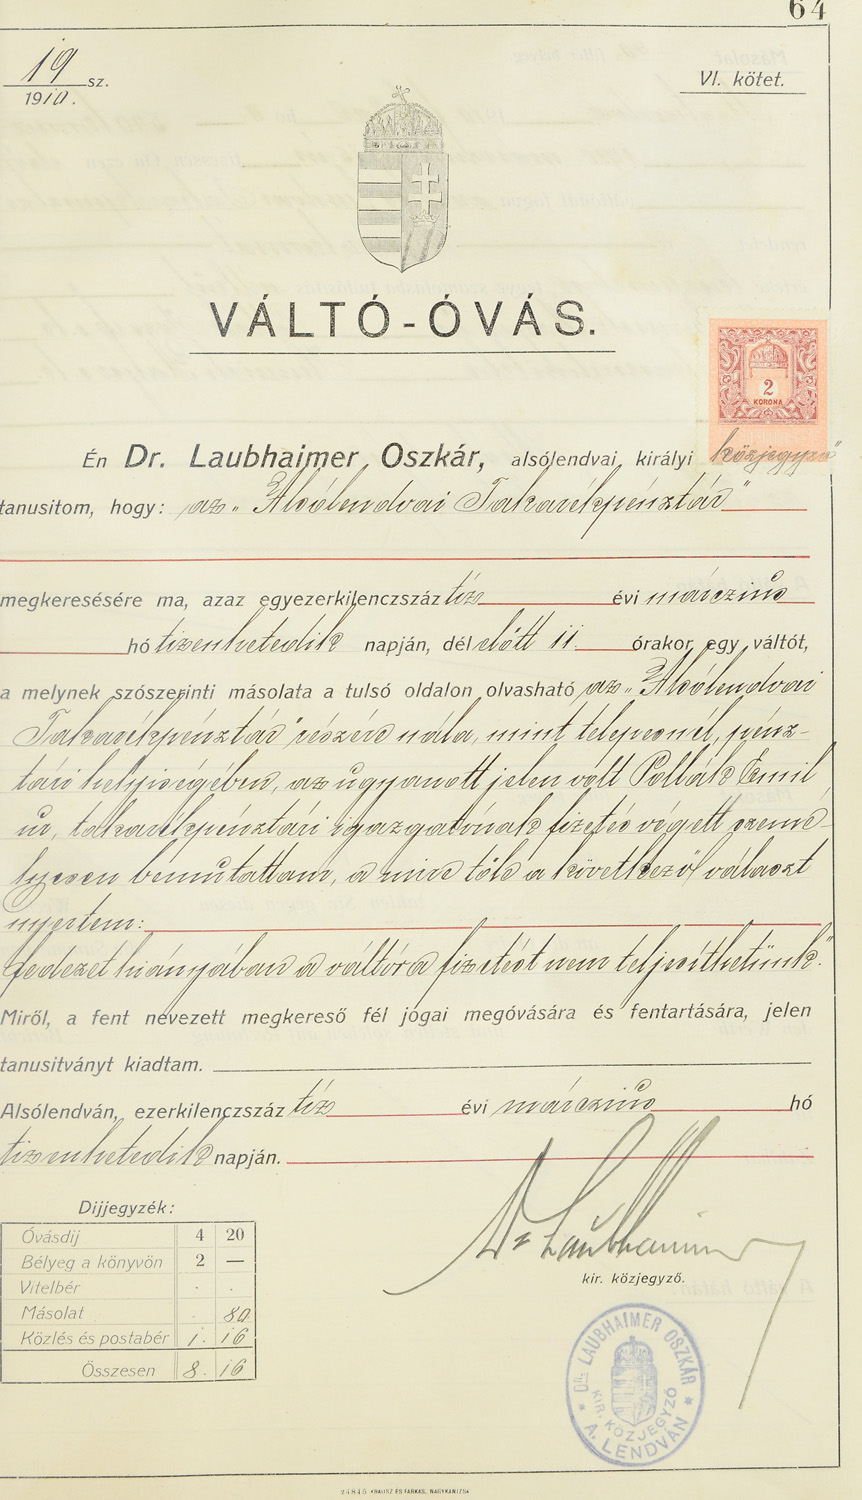 64
19 sz.
1910.
VI. kötet.
VÁLTÓ-ÓVÁS.
2
KORONA
Én Dr. Laubhaimer Oszkár, alsólendvai királyi közjegyző
tanusitom, hogy: az „Alsólendvai Takarékpénztár"
megkeresésére ma, azaz egyezerkilenczszáz tíz évi márczius
hó tizenhetedik napján, dél előtt 11 órakor egy váltót,
a melynek szószerinti másolata a tulsó oldalon olvasható az „Alsólendvai
Takarékpénztár" részére nála, mint telepesnél, pénz-
tári helyiségében, az ugyanott jelen volt Pollák Emil
úr, takarékpénztári igazgatónak fizetés végett szemé-
lyesen bemutattam, a mire tőle a következő választ
nyertem:
fedezet hiányában a váltóra fizetést nem teljesíthetünk."
Miről, a fent nevezett megkereső fél jogai megóvására és fentartására, jelen
tanusitványt kiadtam.
Alsólendván, ezerkilenczszáz tíz évi márczius hó
tizenhetedik napján.
Dr Laubhaimer
kir. közjegyző.
Dijjegyzék:
Óvásdij 4 20
Bélyeg a könyvön 2 —
Vitelbér . .
Másolat . 80
Közlés és postabér 1. 16
Összesen 8. 16
DR. LAUBHAIMER OSZKÁR
KIR. KÖZJEGYZŐ
A. LENDVÁN
KRAUSZ ÉS FARKAS, NAGYKANIZSA